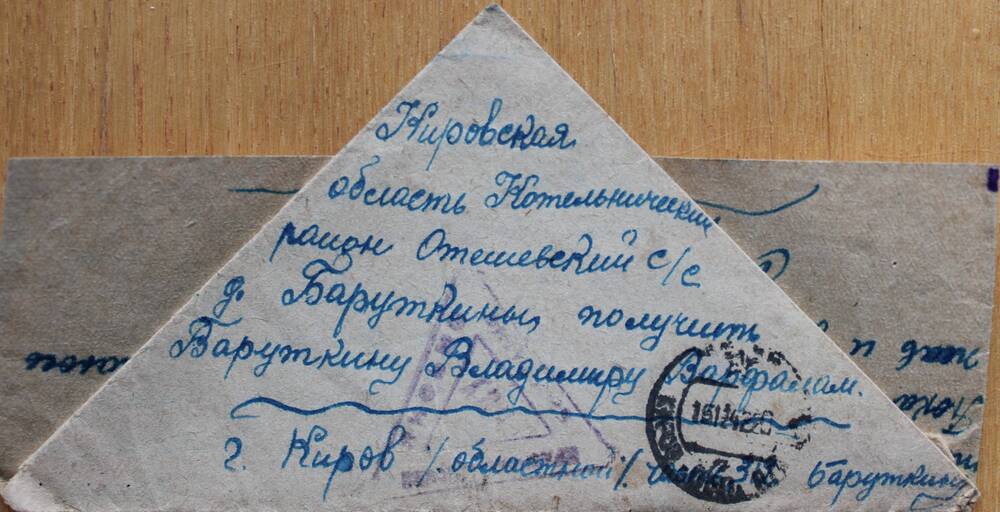 Кировская
область Котельнический
район Отешевский с/с
д. Баружкины, получить
Баружкину Владимиру Варфалам.
г. Киров /. областной /. часть Баружкину